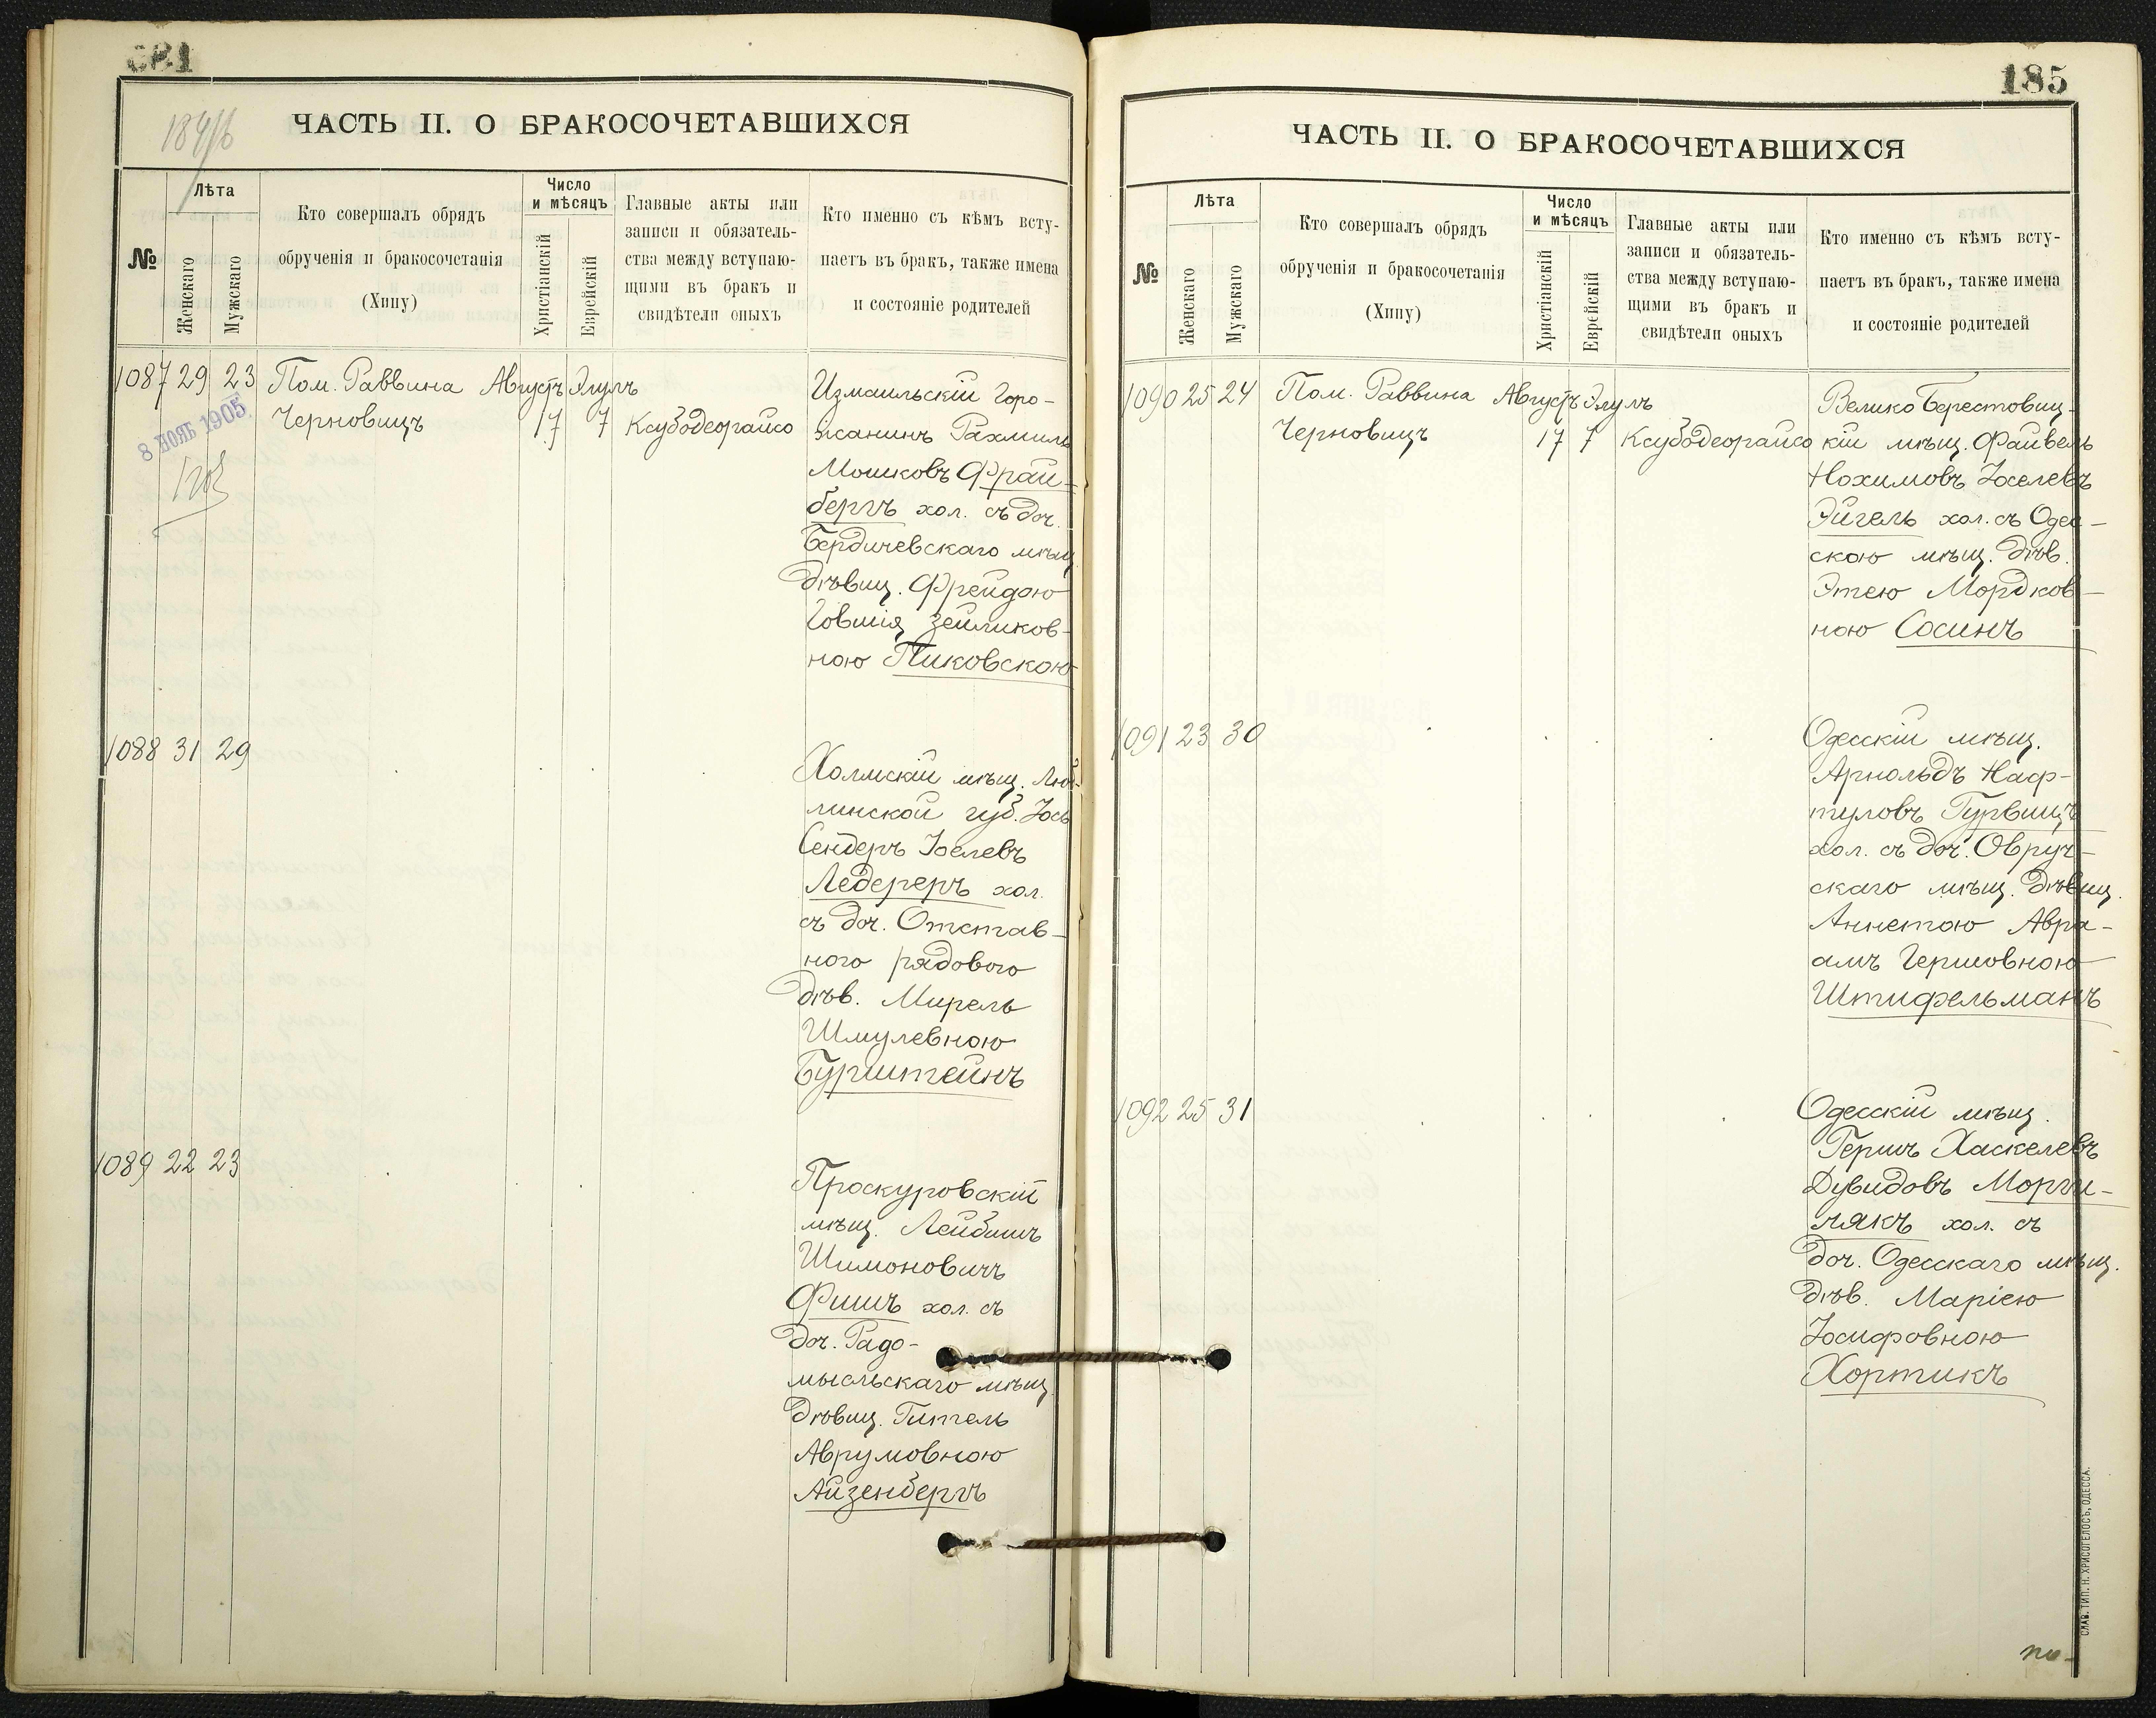 ЧАСТЬ II. О БРАКОСОЧЕТАВШИХСЯ
№
Лѣта
Женскаго
Мужскаго
Кто совершалъ обрядъ
обрученія и бракосочетанія
(Хипу)
Число
и мѣсяцъ
Христіанскій
Еврейскій
Главные акты или
записи и обязатель-
ства между вступаю-
щими въ бракъ и
свидѣтели оныхъ
Кто именно съ кѣмъ всту-
паетъ въ бракъ, также имена
и состояніе родителей
1087 29 23 Пом. Раввина Августъ Элулъ
Черновицъ 17 7 Ксубодеорайсо
8 НОЯБ 1905
Измаильскій Горо-
жанинъ Рахмиль
Мошковъ Фрай-
бергъ хол. съ доч.
Бердичевскаго мѣщ.
дѣвиц. Фрейдою
Говшія Зейликов-
ною Пиковскою
1088 31 29
Холмскій мѣщ. Люб-
линской губ. Іось
Сендеръ Іоселевъ
Ледереръ хол.
съ доч. Отстав-
ного рядового
дѣв. Мирель
Шмулевною
Бурштейнъ
1089 22 23
Проскуровскій
мѣщ. Лейбишъ
Шимоновичъ
Фишъ хол. съ
доч. Радо-
мысльскаго мѣщ.
дѣвиц. Гитель
Аврумовною
Айзенбергъ
185
ЧАСТЬ II. О БРАКОСОЧЕТАВШИХСЯ
№
Лѣта
Женскаго
Мужскаго
Кто совершалъ обрядъ
обрученія и бракосочетанія
(Хипу)
Число
и мѣсяцъ
Христіанскій
Еврейскій
Главные акты или
записи и обязатель-
ства между вступаю-
щими въ бракъ и
свидѣтели оныхъ
Кто именно съ кѣмъ всту-
паетъ въ бракъ, также имена
и состояніе родителей
1090 25 24 Пом. Раввина Августъ Элулъ
Черновицъ 17 7 Ксубодеорайсо
Велико Берестовиц-
кій мѣщ. Файвель
Нохимовъ Іоселевъ
Эйгель хол. съ Одес-
скою мѣщ. дѣв.
Этею Мордков-
ною Сосинъ
1091 23 30
Одесскій мѣщ.
Арнольдъ Наф-
туловъ Гурвицъ
хол. съ доч. Овруч-
скаго мѣщ. дѣвиц.
Аннетою Авра-
амъ Гершовною
Штифельманъ
1092 25 31
Одесскій мѣщ.
Гершъ Хаскелевъ
Дувидовъ Морги-
лякъ хол. съ
доч. Одесскаго мѣщ.
дѣв. Маріею
Іосифовною
Хортикъ
СЛАВ. ТИП. Н. ХРИСОГЕЛОСЪ, ОДЕССА.